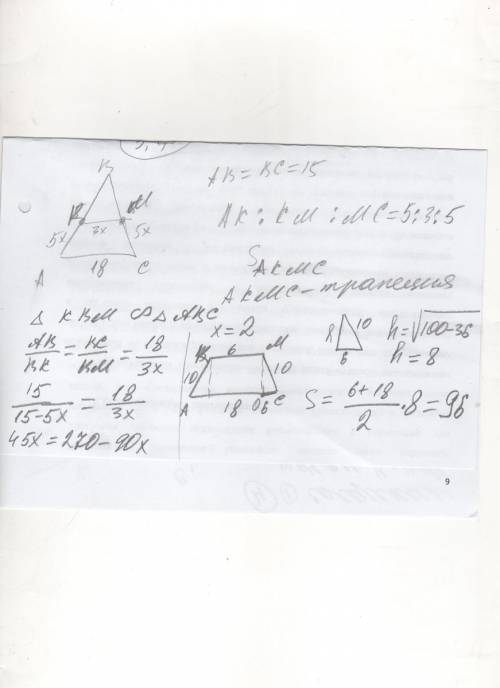 B
K M
5x 3x 5x
A 18 C
AB = BC = 15
AK : KM : MC = 5 : 3 : 5
S AKMC
AKMC - трапеция
△ KBM ∞ △ ABC
AB/BK = BC/BM = 18/3x
15/(15-5x) = 18/3x
45x = 270 - 90x
x = 2
K 6 M
10 10
A 18 O 6 C
h 10
6
h = √(100-36)
h = 8
S = (6+18)/2 · 8 = 96
9